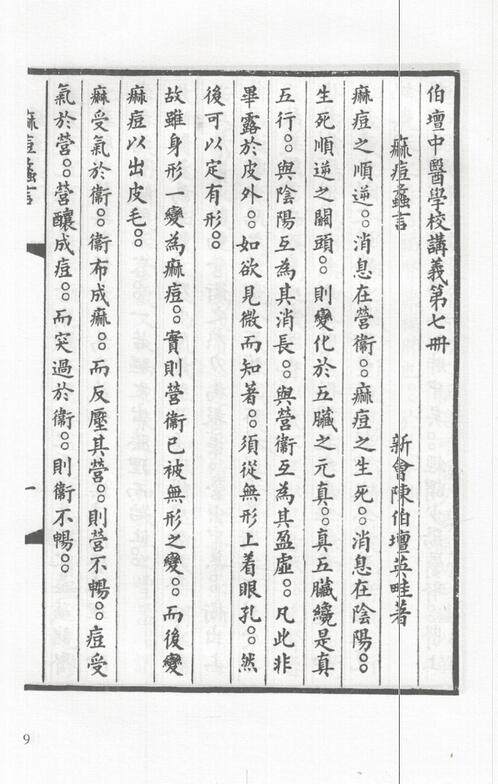 伯壇中醫學校講義第七冊
麻痘蠡言
新會陳伯壇英畦著
麻痘之順逆。。消息在營衞。。麻痘之生死。。消息在陰陽。。
生死順逆之關頭。。則變化於五臟之元真。。真五臟纔是真
五行。。與陰陽互為其消長。。與營衞互為其盈虛。。凡此非
畢露於皮外。。如欲見微而知著。。須從無形上着眼孔。。然
後可以定有形。。
故雖身形一變為麻痘。。實則營衞已被無形之變。。而後變
麻痘以出皮毛。。
麻受氣於衞。。衞布成麻。。而反壓其營。。則營不暢。。痘受
氣於營。。營釀成痘。。而突過於衞。。則衞不暢。。
麻痘蠡言
一
9